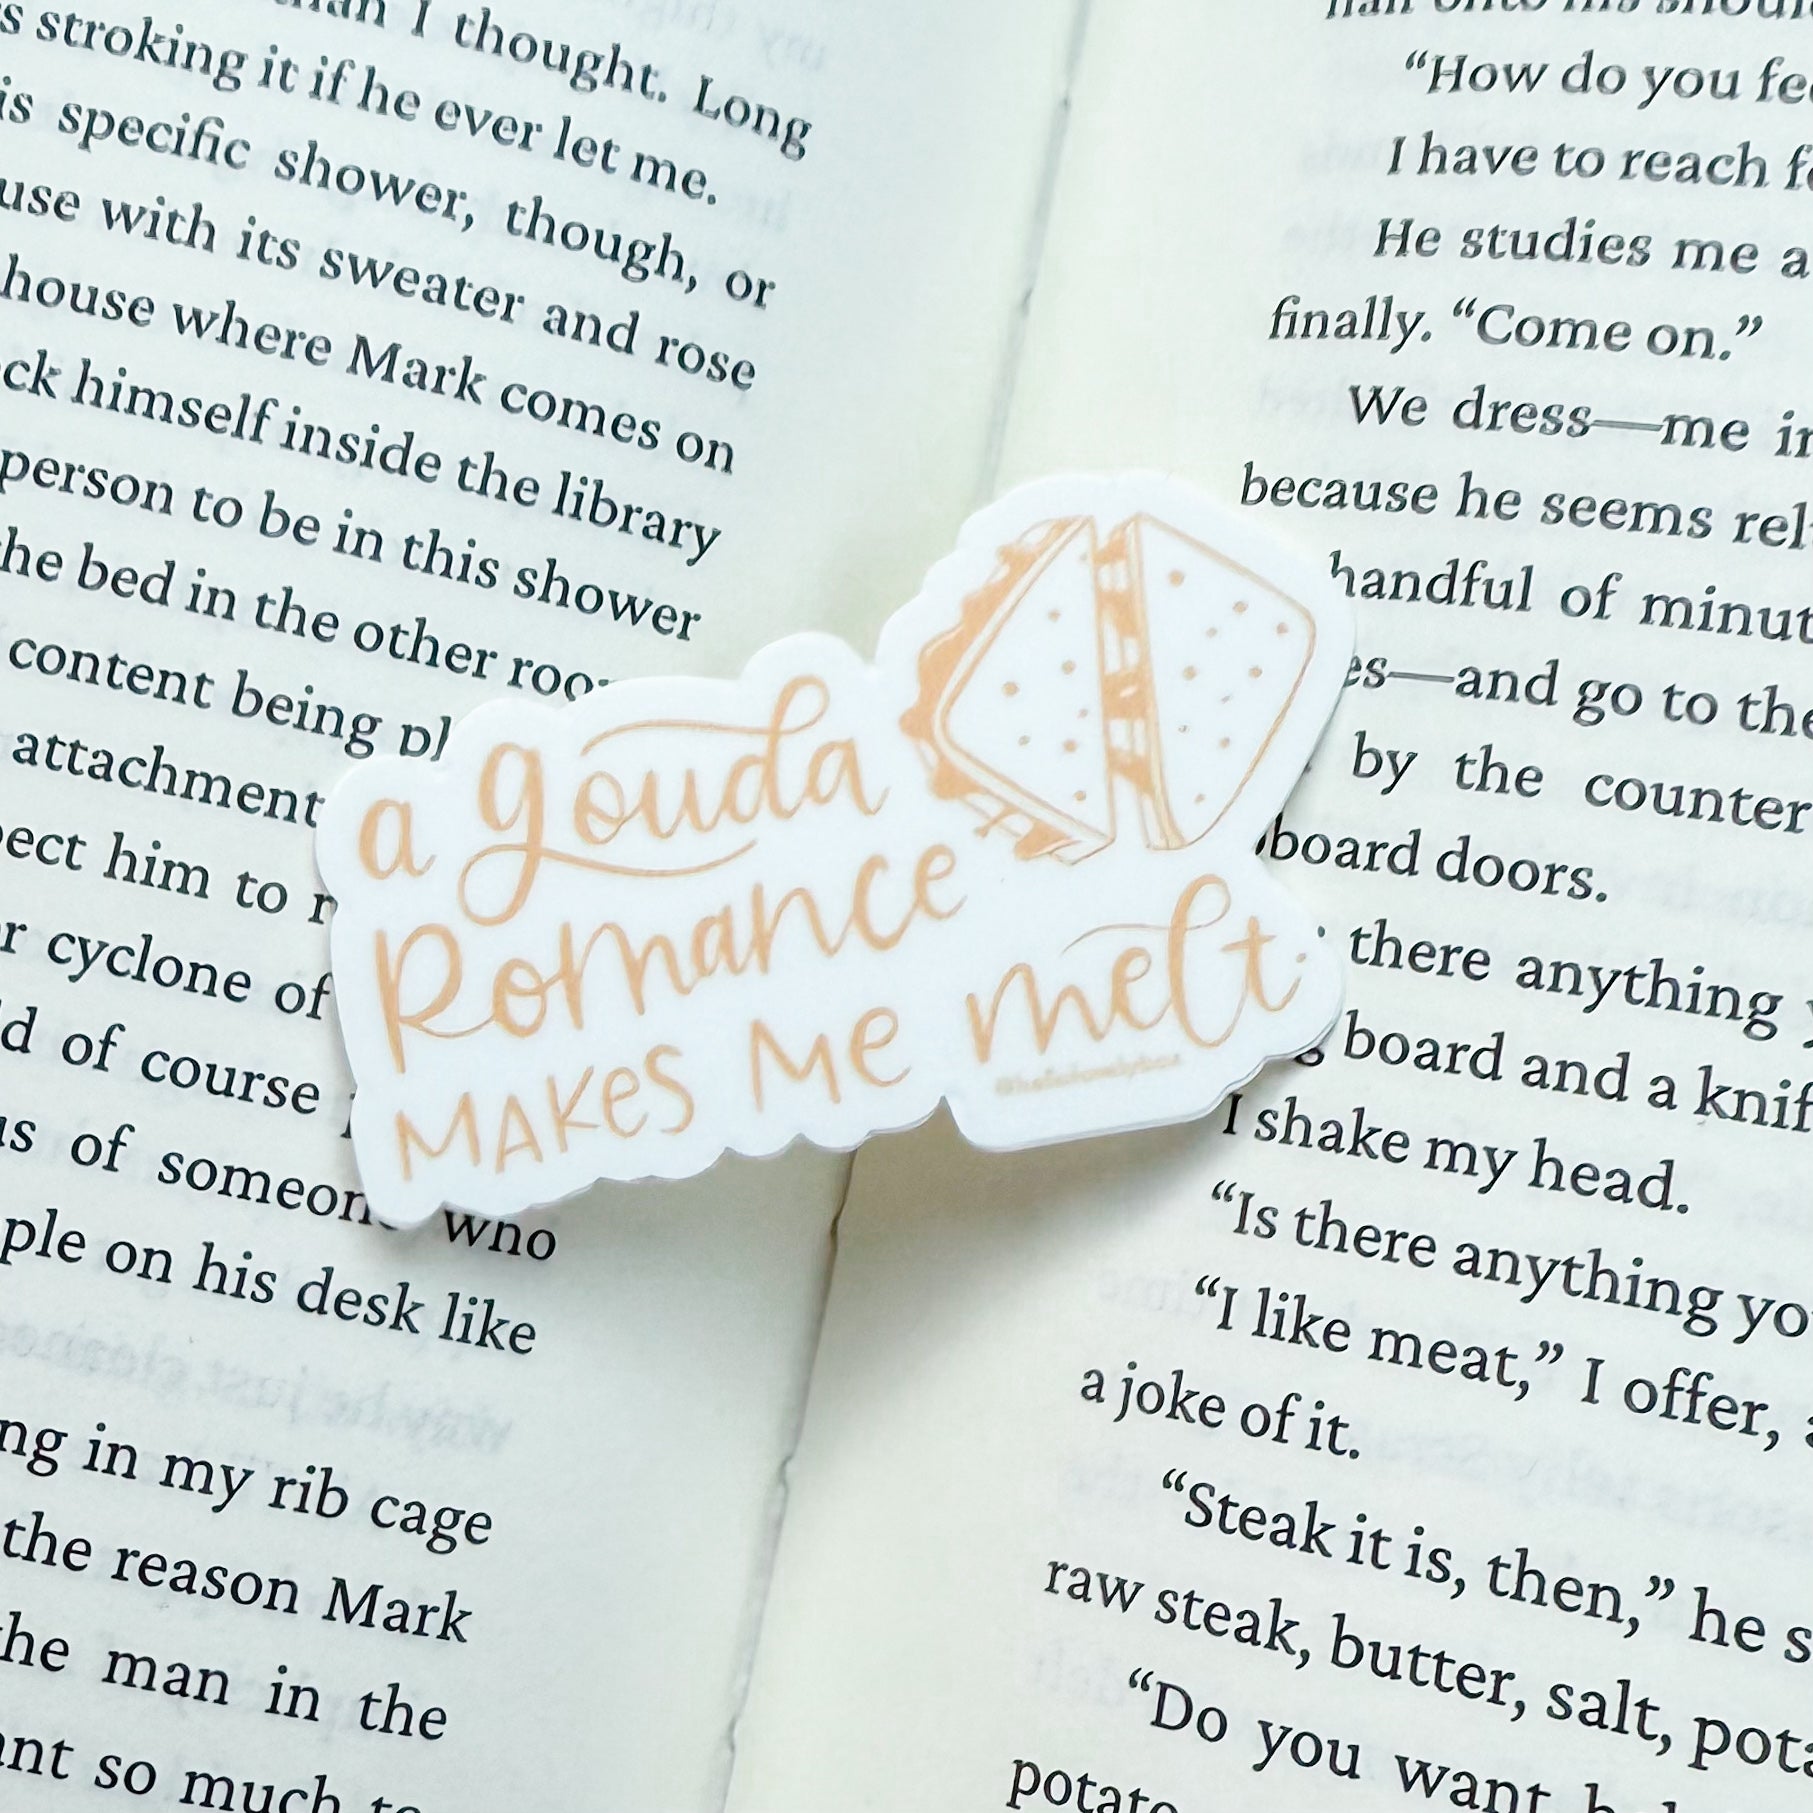 than I thought. Long
stroking it if he ever let me.
is specific shower, though, or
use with its sweater and rose
house where Mark comes on
ck himself inside the library
person to be in this shower
he bed in the other
content being
attachment
him to
cyclone of
of course
of
who
ple on his desk like
ng in my rib cage
the reason Mark
he man in the
so much
a gouda
Romance
MAKES Me melt.
“How do you
I have to reach
He studies me a
finally. “Come on.”
We dress—me
because he seems
handful of
es—and go to
by the counter
board doors.
there anything
board and a
I shake my head.
“Is there anything
“I like meat,” I offer,
a joke of it.
“Steak it is, then,” he
raw steak, butter, salt,
“Do you want